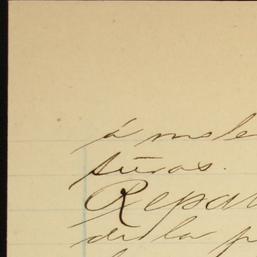 á mole
turas.
Repa
de la p